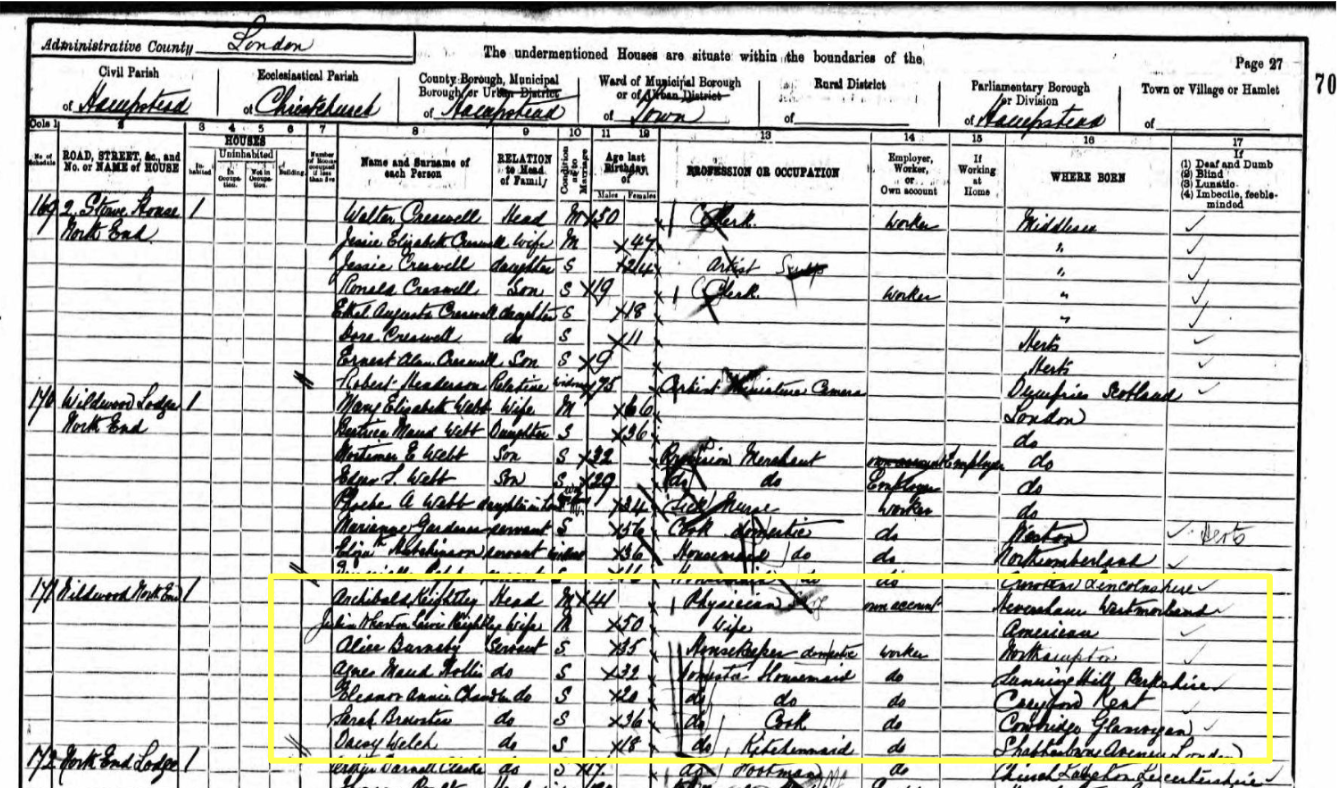 Administrative County London
The undermentioned Houses are situate within the boundaries of the
Page 27
70
Civil Parish Ecclesiastical Parish County Borough, Municipal Borough or Urban District Ward of Municipal Borough or of Urban District Rural District Parliamentary Borough or Division Town or Village or Hamlet
of Hampstead of Christchurch of Hampstead of Town of of Hampstead of
Cols 1 2 3 4 5 6 7 8 9 10 11 12 13 14 15 16 17
HOUSES
No. of Schedule ROAD, STREET, &c., and No. or NAME of HOUSE Inhabited Uninhabited In Occupation. Not in Occupation. Building. Name and Surname of each Person RELATION to Head of Family Condition as to Marriage Age last Birthday of Males Females PROFESSION OR OCCUPATION Employer, Worker, or Own account If Working at Home WHERE BORN If (1) Deaf and Dumb (2) Blind (3) Lunatic (4) Imbecile, feeble-minded
169 2, Stowe House 1 Walter Creswell Head M 50 Clerk. Worker Middlesex
North End Jessie Elizabeth Creswell Wife M 47 "
Jessie Creswell daughter S 24 Artist Sculp "
Ronald Creswell Son S 19 Clerk. Worker "
Ethel Augusta Creswell daughter S 18 "
Dora Creswell do S 11 Herts
Ernest Alan Creswell Son S 9 Herts
Robert Henderson Relative Widower 75 Artist Miniature Dumfries Scotland
170 Wildwood Lodge 1 Mary Elizabeth Webb Wife M 66 London
North End Beatrice Maud Webb Daughter S 36 do
Mortimer E Webb Son S 32 Provision Merchant own account Employer do
Edgar S. Webb Son S 29 do do Employer do
Phoebe A Webb daughter in law 34 Sick Nurse Worker do
Marianne Gardner servant S 56 Cook domestic do Weston Herts
Eliza Hutchinson servant widow 36 Housemaid do do Northumberland
servant Housemaid do do Lincolnshire
171 Wildwood North End 1 Archibald Keightley Head M 41 Physician own account Heversham Westmorland
Keightley Wife M 50 Wife American
Alice Barnaby Servant S 35 Housekeeper domestic worker Northampton
Agnes Maud Hollis do S 32 Domestic Housemaid do Sunning Hill Berkshire
Eleanor Annie Chandler do S 20 do do do Crayford Kent
Sarah Brewster do S 36 do Cook do Cowbridge Glamorgan
Daisy Welch do S 18 do Kitchenmaid do Shaftesbury Avenue London
172 North End Lodge 1 Arthur Darnell Clarke do S 17 do Footman do Church Langton Leicestershire